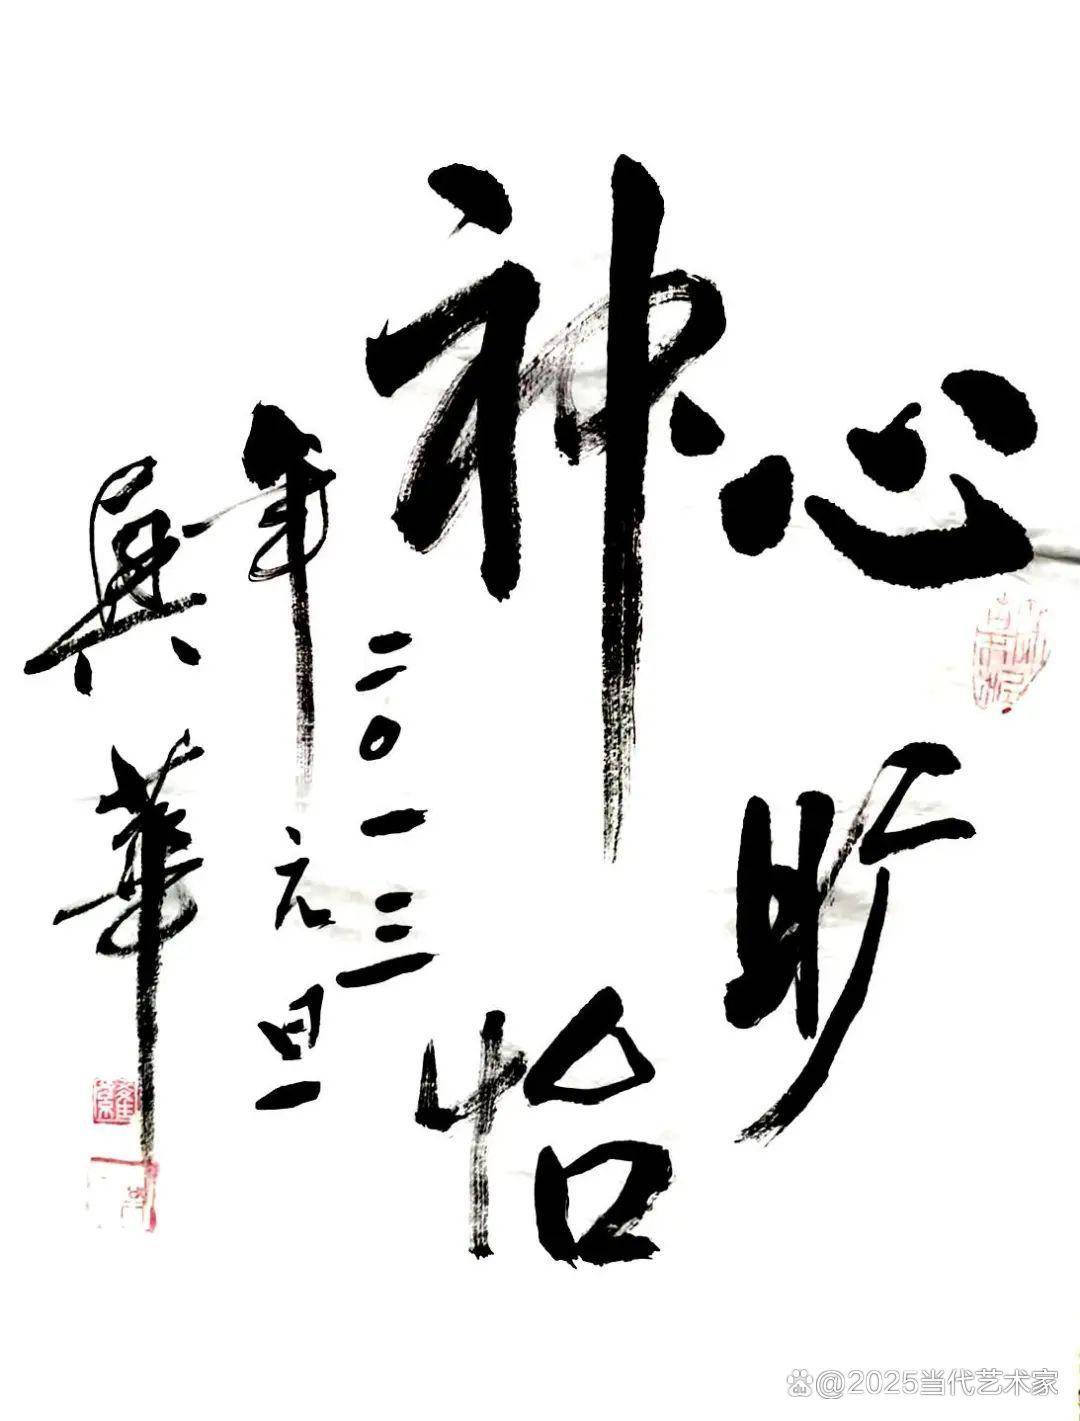 心旷
神怡
二〇一三
年元旦
兴华
@2025当代艺术家